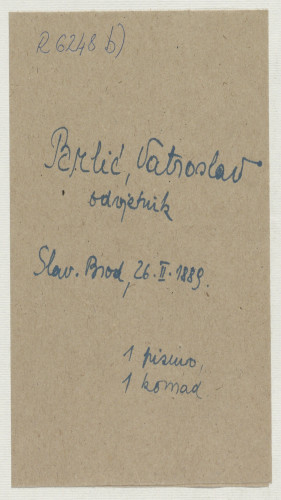 R 6248 b)
Brlić, Vatroslav
odvjetnik
Slav. Brod, 26. II. 1889.
1 pismo,
1 komad